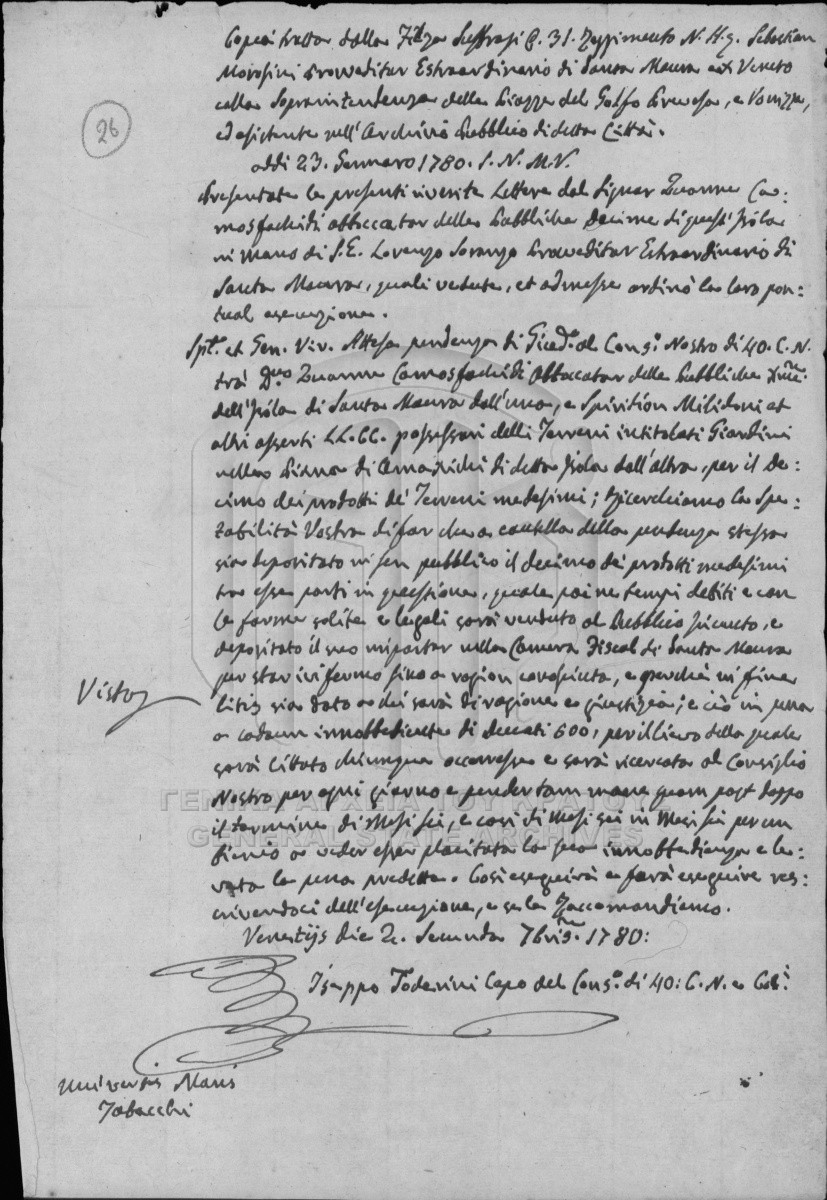 Copia tratta dalla Filza Suffragi C. 31. Reggimento N. H. q. Sebastian
Morosini Proveditor Estraordinario di Santa Maura et Veneto
colla Sopraintendenza della Piazza del Golfo Prevesa, e Vonizza,
esistente nell'Archivio Pubblico di detta Città.
26
addi 23. Gennaro 1780. S. N. M.V.
Presentate le presenti riverite Lettere dal Signor Zuanne Ca=
mosfachidi abboccator delle Pubbliche Decime di quest'Isola
in mano di S.E. Lorenzo Soranzo Proveditor Estraordinario di
Santa Maura, quali vedute, et admesse ordinò la loro pon=
tual esecuzione.
Spt. et Gen. Viv. Attesa pendenza di Giud.o al Cons.o Nostro di 40. C. N.
trà D.no Zuanne Camosfachidi Abboccator delle Pubbliche
dell'Isola di Santa Maura dall'una, e Spiritión Milidoni et
altri asserti LL.CC. possessori delli Terreni intitolati Giardini
nella Piana di Amaxichi di detta Isola dall'altra, per il De=
cimo dei prodotti de' Terreni medesimi; Ricerchiamo la Spe=
tabilità Vostra di far che a cautella della pendenza stessa
sia depositato in sen pubblico il decimo dei prodotti medesimi
tra esse parti in questione, quale poi ne tempi debiti e con
le forme solite e legali sarà venduto al Pubblico Incanto, e
depositato il suo importar nella Camera Fiscal di Santa Maura
per star ivi fermo sino a ragion conosciuta, e perchè in fine
Visto
litis sia dato a chi sarà di ragione e giustizia; e ciò in pena
a cadaun innobbediente di Ducati 600, per il lievo della quale
sarà cittato chiunque occorresse e sarà ricercato al Consiglio
Nostro per ogni giorno e pendentam mane quam post doppo
il termine di Mesi sei, e così di Mesi sei in Mesi sei per un
biennio a veder esser placitata la sua innobbedienza e le=
vata la pena predetta. Così eseguirà e farà eseguire res=
crivendoci dell'esecuzione, e se le Raccomandiamo.
ΓΕΝΙΚΑ ΑΡΧΕΙΑ ΤΟΥ ΚΡΑΤΟΥΣ
GENERAL STATE ARCHIVES
Venetijs die 2. Secunda 7bris. 1780:
Iseppo Toderini Capo del Cons.o di 40: C. N. e Col:
Maris
Tabacchi